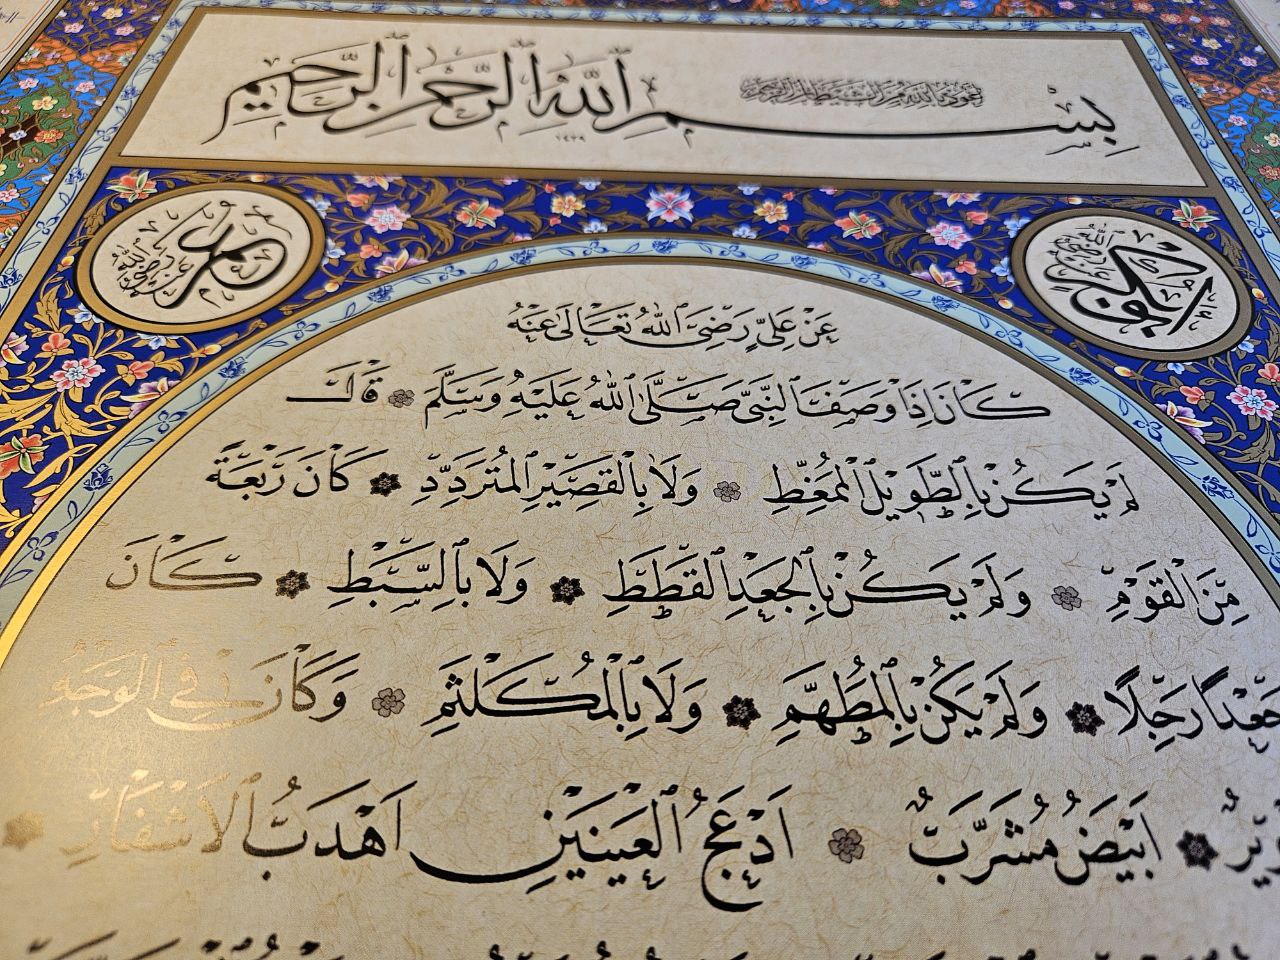 بِسْمِ اللهِ الرَّحْمٰنِ الرَّحِيمِ
١٤٣٩
ابوبكر رضي الله عنه
عمر رضي الله عنه
عَنْ عَلِيٍّ رَضِيَ اللهُ تَعَالٰى عَنْهُ
كَانَ إِذَا وَصَفَ النَّبِيَّ صَلَّى اللهُ عَلَيْهِ وَسَلَّمَ قَالَ
لَمْ يَكُنْ بِالطَّوِيلِ الْمُمَغَّطِ وَلَا بِالْقَصِيرِ الْمُتَرَدِّدِ كَانَ رَبْعَةً
مِنَ الْقَوْمِ وَلَمْ يَكُنْ بِالْجَعْدِ الْقَطَطِ وَلَا بِالسَّبِطِ كَانَ
جَعْدًا رَجِلًا وَلَمْ يَكُنْ بِالْمُطَهَّمِ وَلَا بِالْمُكَلْثَمِ وَكَانَ فِي الْوَجْهِ
أَبْيَضُ مُشْرَبٌ أَدْعَجُ الْعَيْنَيْنِ أَهْدَبُ الْأَشْفَارِ